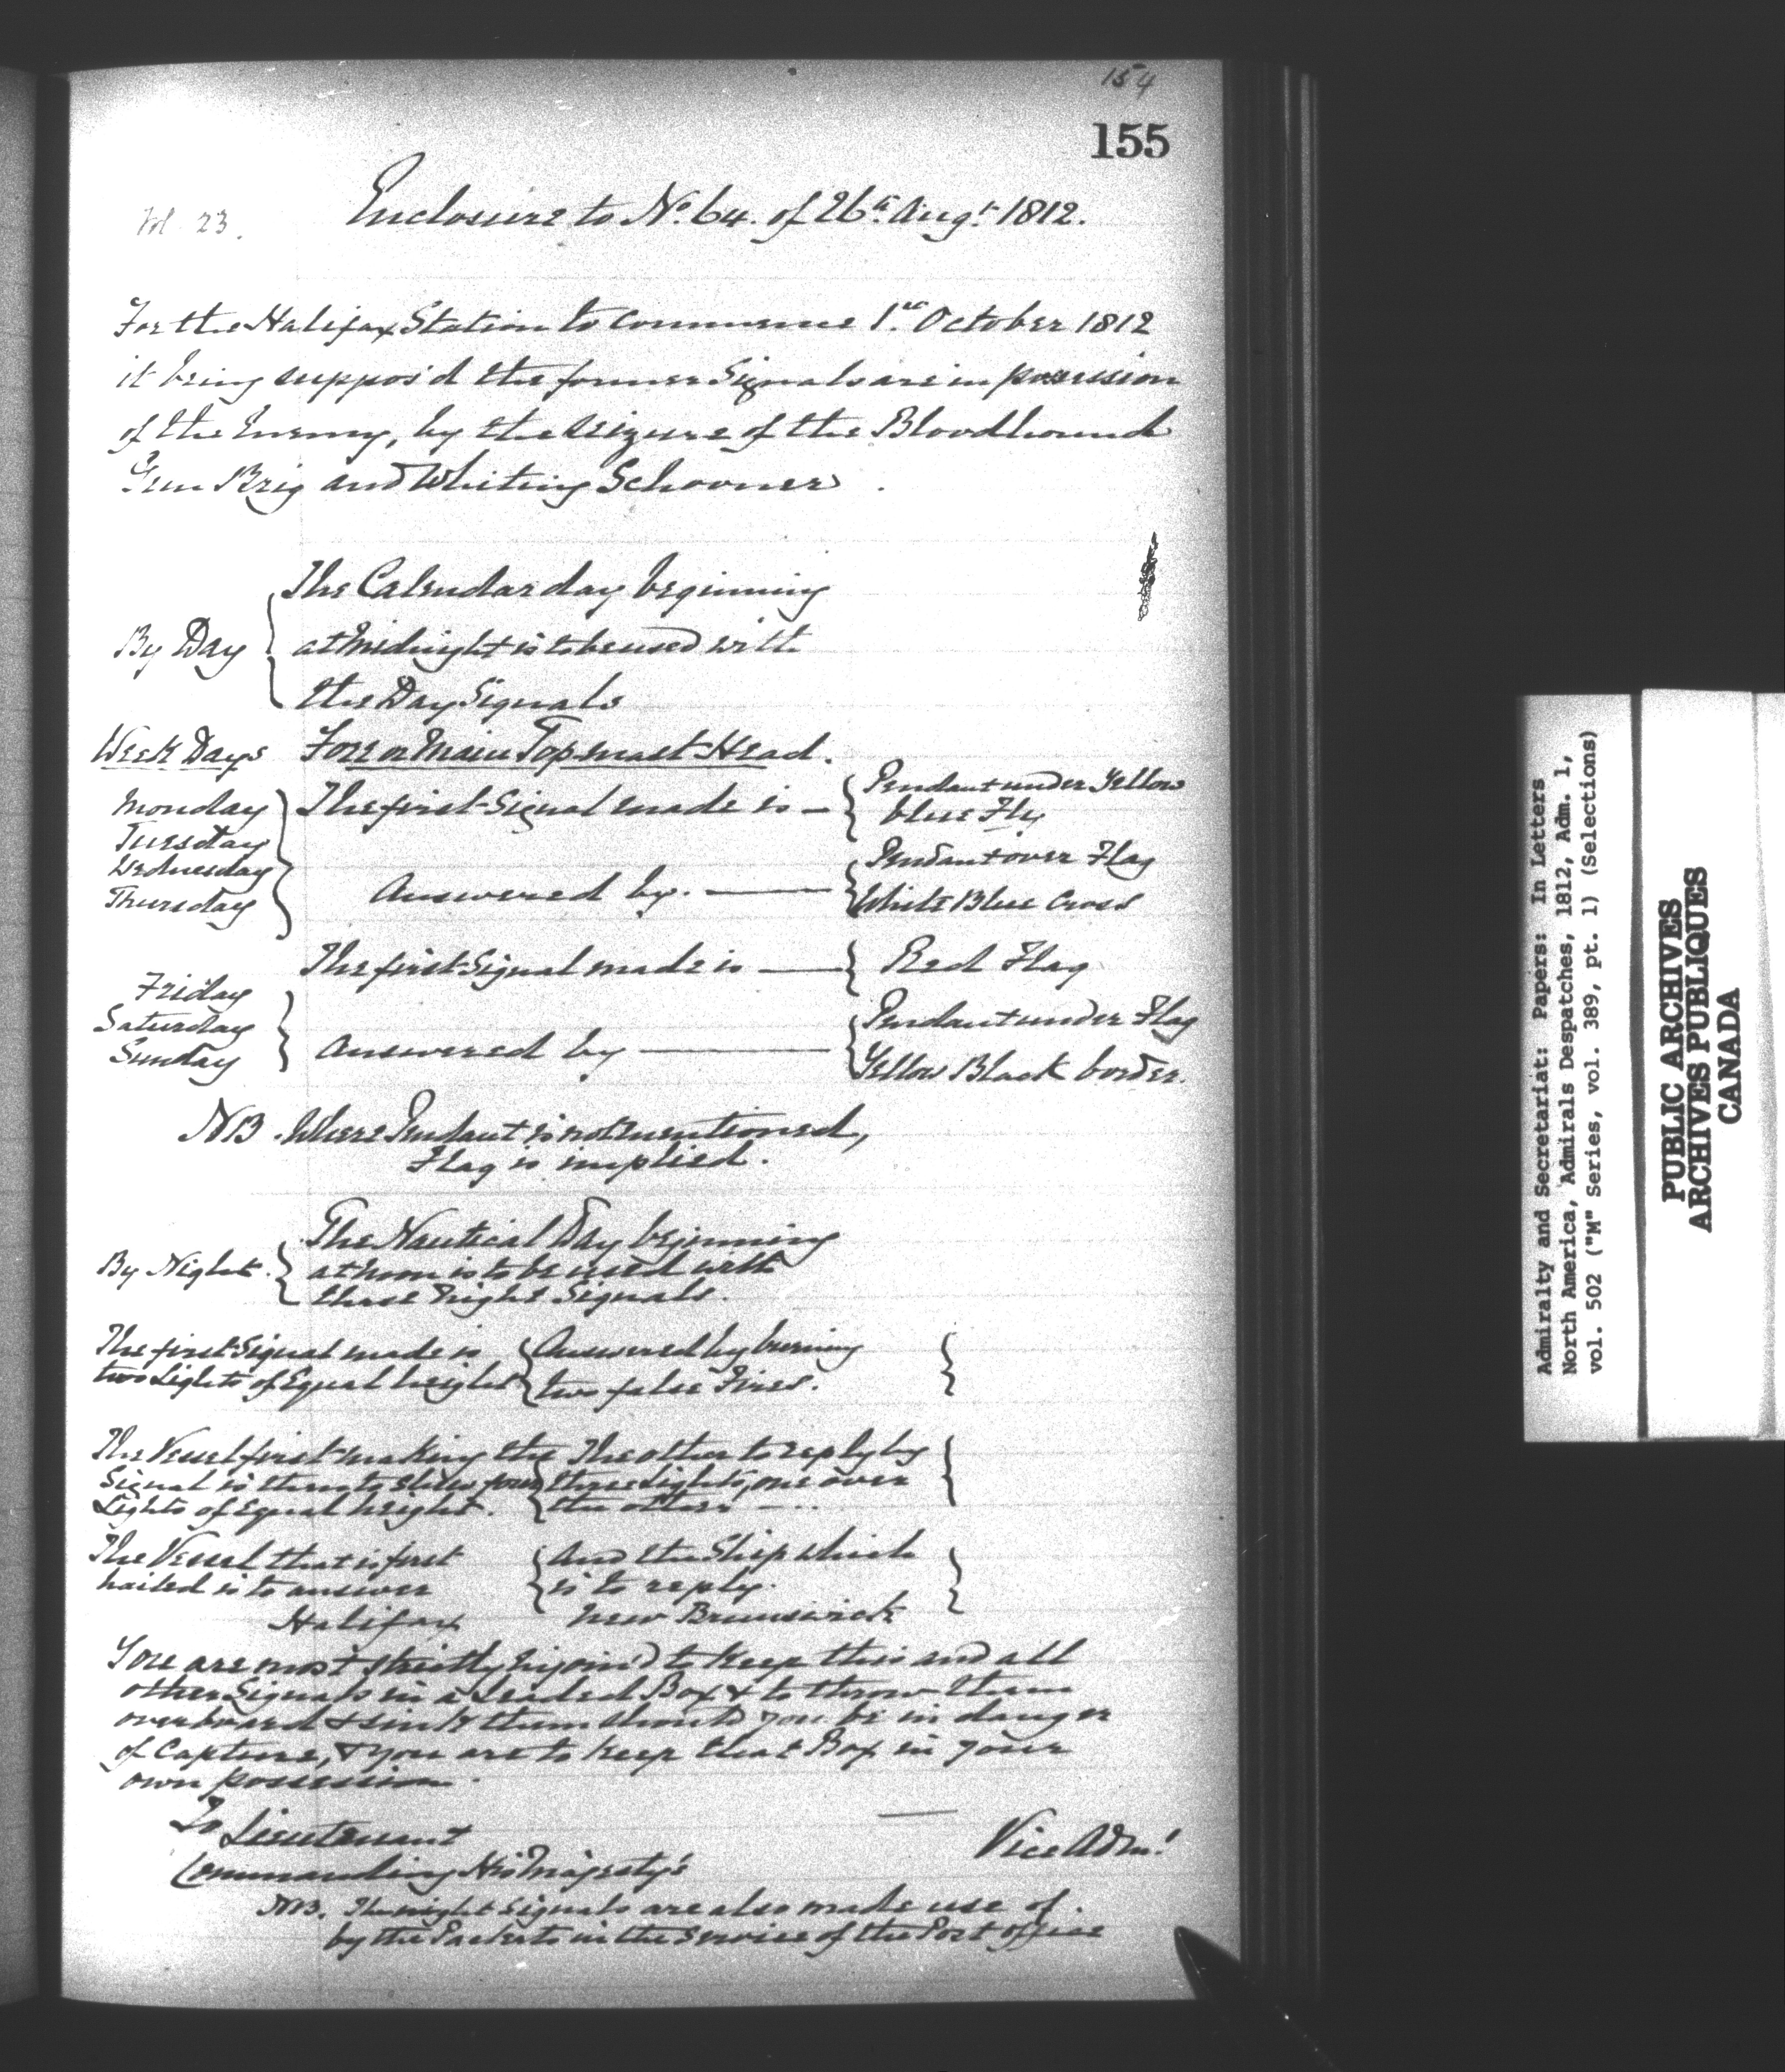 154
155
Vol. 23.
Enclosure to No. 64. of 26th Augt. 1812.
For the Halifax Station to commence 1st October 1812
it being suppos'd the former Signals are in possession
of the Enemy, by the seizure of the Bloodhound
Gun Brig and Whiting Schooner.
The Calendar day beginning
By Day { at Midnight is to be used with
the Day Signals
Week Days Fore or Main Topmast Head.
Monday
Tuesday
Wednesday
Thursday
The first Signal made is — { Pendant under Yellow
blue Fly
Answered by. — { Pendant over Flag
White Blue Cross
Friday
Saturday
Sunday
The first Signal made is — { Red Flag
Answered by — { Pendant under Flag
Yellow Black border.
NB. Where Pendant is not mentioned,
Flag is implied.
The Nautical Day beginning
By Night. { at noon is to be used with
these Night Signals.
The first Signal made is { Answered by burning }
two Lights of Equal height { two false Fires. }
The Vessel first making the { The other to reply by }
Signal is then to shew four { three Lights, one over }
Lights of Equal height. { the other — .. }
The Vessel that is first { And the Ship which }
hailed is to answer { is to reply. }
Halifax New Brunswick
You are most strictly enjoin'd to keep this and all
other Signals in a Leaded Box & to throw them
overboard & sink them should you be in danger
of Capture, & you are to keep that Box in your
own possession.
To Lieutenant
Vice Adml.
Commanding His Majesty's
NB. The night Signals are also made use of
by the Packets in the Service of the Post Office
Admiralty and Secretariat: Papers: In Letters
North America, Admirals Despatches, 1812, Adm. 1,
vol. 502 ("M" Series, vol. 389, pt. 1) (Selections)
PUBLIC ARCHIVES
ARCHIVES PUBLIQUES
CANADA